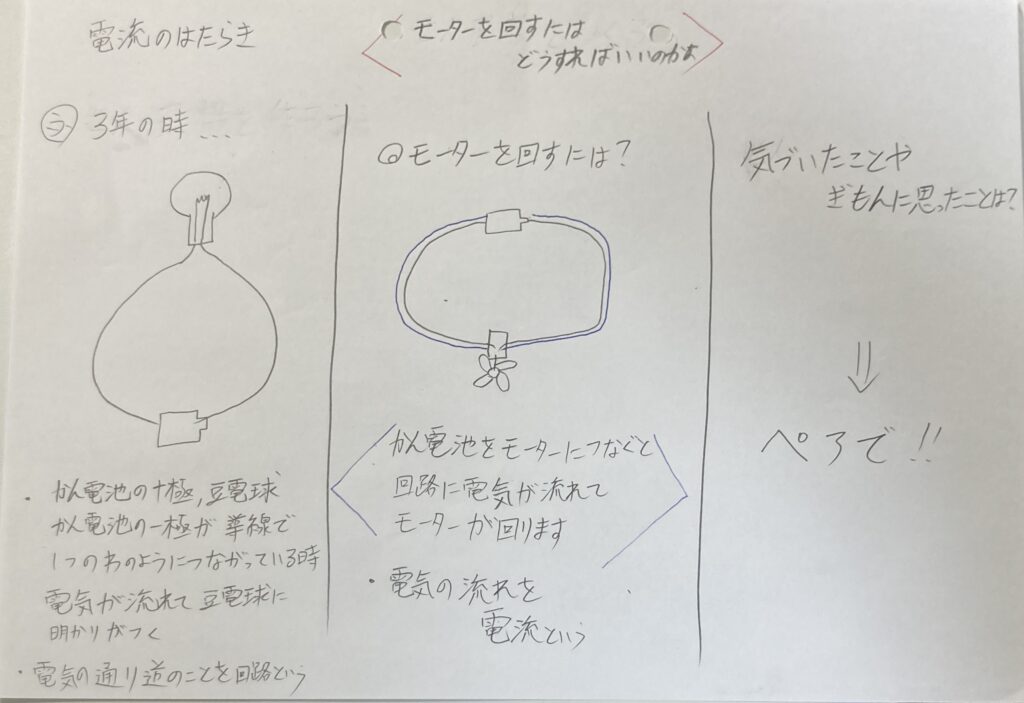 電流のはたらき
モーターを回すには
どうすればいいのかな
ラ 3年の時...
かん電池の+極,豆電球
かん電池の-極が導線で
1つのわのようにつながっている時
電気が流れて豆電球に
明かりがつく
・電気の通り道のことを回路という
モーターを回すには?
かん電池をモーターにつなぐと
回路に電気が流れて
モーターが回ります
・電気の流れを
電流という
気づいたことや
ぎもんに思ったことは?
ペアで!!